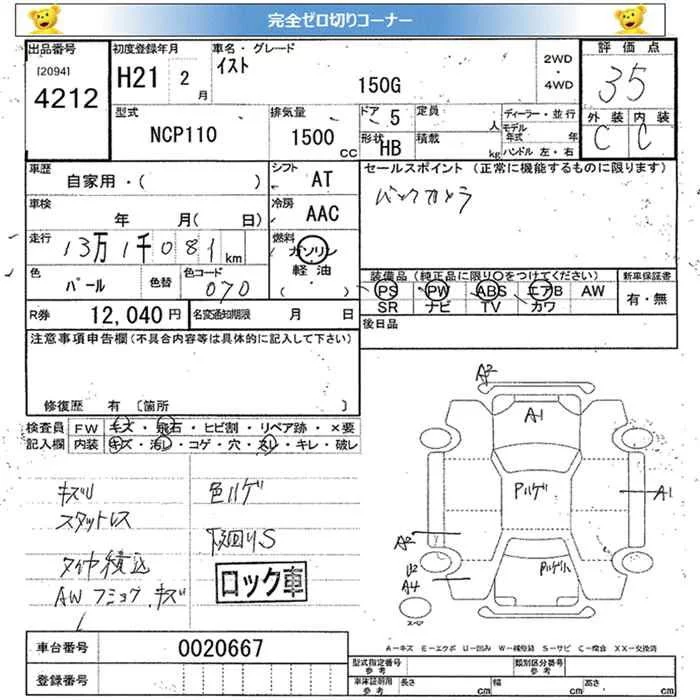 完全ゼロ切りコーナー
出品番号
[2094]
4212
初度登録年月
H21 2 月
車名・グレード
イスト
150G
2WD
・
4WD
評価点
35
外装 内装
C C
型式
NCP110
排気量
1500 CC
ドア 5
形状 HB
定員 人
積載 kg
ディーラー・並行
モデル年式 年
ハンドル 左・右
車歴
自家用・( )
シフト
AT
セールスポイント (正常に機能するものに限ります)
バックカメラ
車検
年 月( 日)
冷房
AAC
走行
13万1千081 km
燃料
ガソリン
軽油
( )
色
パール
色替
色コード
070
装備品(純正品に限り〇をつけてください)
PS PW ABS エアB AW
SR ナビ TV カワ
新車保証書
有・無
R券 12,040 円
名変通知期限 月 日
後日品
注意事項申告欄(不具合内容等は具体的に記入して下さい)
修復歴 有 〔箇所 〕
検査員記入欄
FW キズ・飛石・ヒビ割・リペア跡・×要
内装 キズ・汚レ・コゲ・穴・スレ・キレ・破レ
キズU
スタットレス
タイヤ積込
AW フミョク.キズ
色ハゲ
下回りS
ロック車
A2
A1
Pハゲ
A1
A2
U2
A4
Pハゲ
スペア
A-キズ E-エクボ U-凹み W-補修跡 S-サビ C-腐食 XX-交換済
車台番号 0020667
登録番号
型式指定番号 参考
類別区分番号 参考
車庫証明用 参考
長さ cm
幅 cm
高さ cm